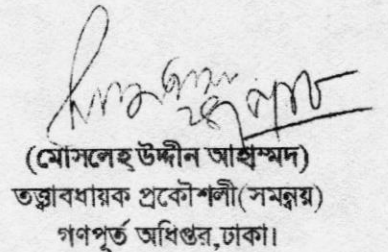 (মোসলেহ উদ্দীন আহাম্মদ)
তত্ত্বাবধায়ক প্রকৌশলী(সমন্বয়)
গণপূর্ত অধিপ্তর,ঢাকা।